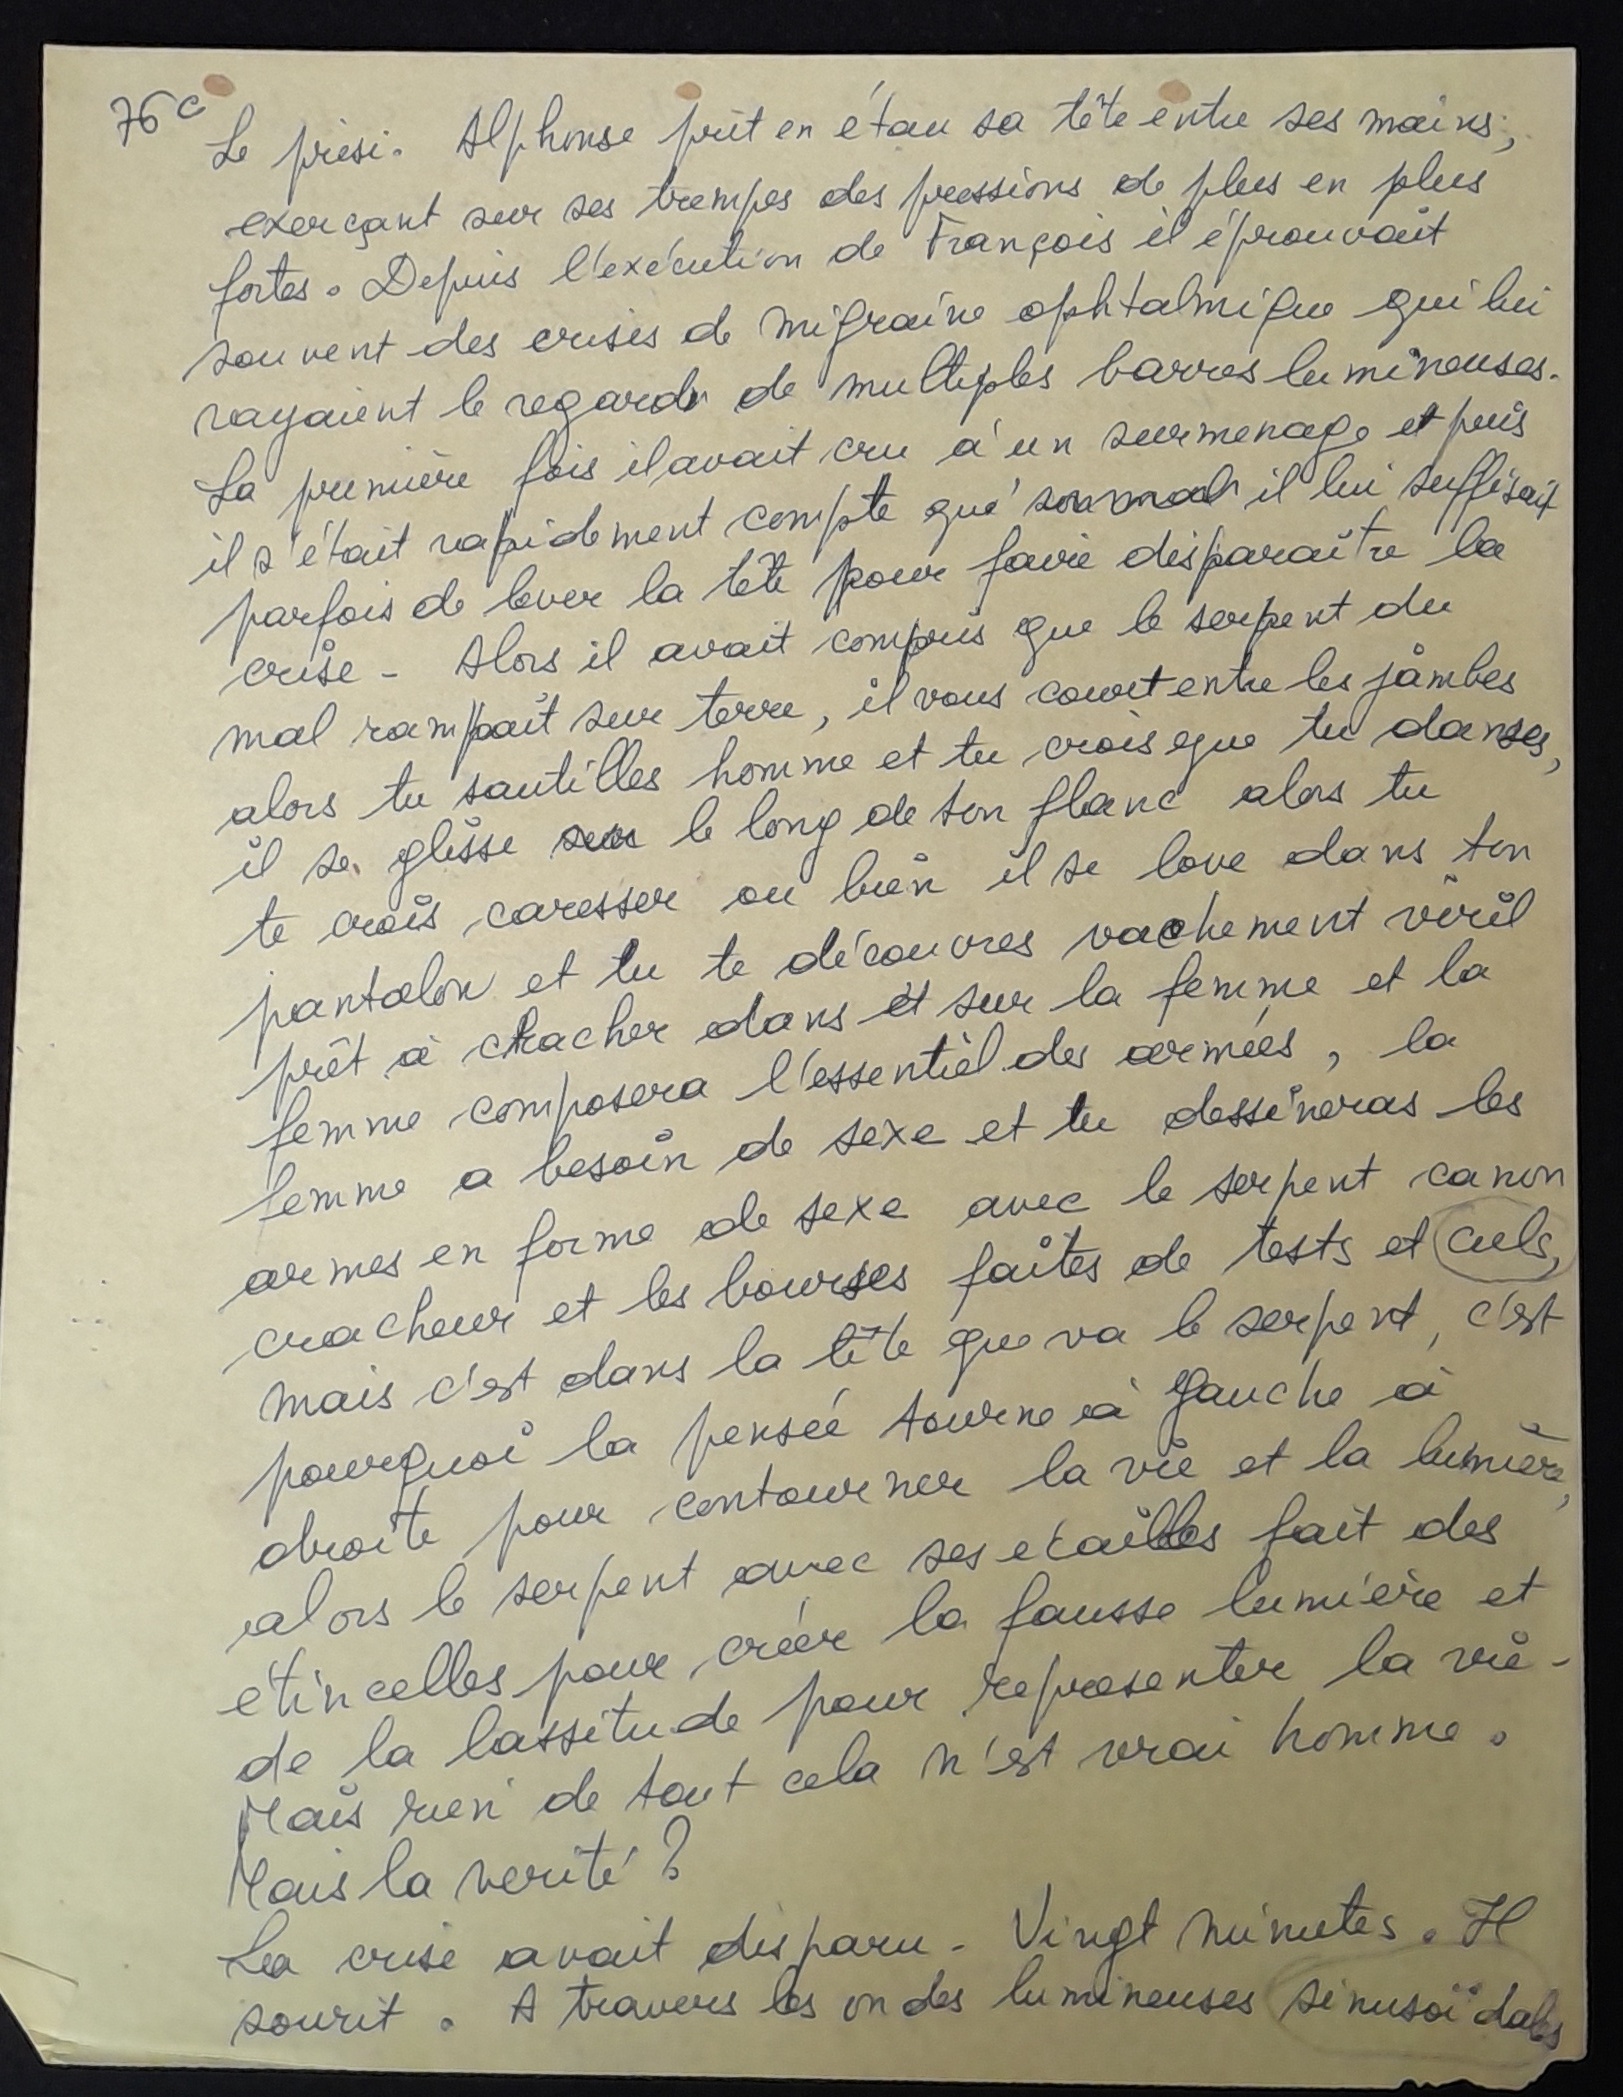 76 c
Le prési. Alphonse prit en étau sa tête entre ses mains,
exerçant sur ses trempes des pressions de plus en plus
fortes. Depuis l'exécution de François il éprouvait
souvent des crises de migraine ophtalmique qui lui
rayaient le regard de multiples barres lumineuses.
La première fois il avait cru à un surmenage et puis
il s'était rapidement compte que son mal il lui suffisait
parfois de lever la tête pour faire disparaître la
crise - Alors il avait compris que le serpent du
mal rampait sur terre, il vous court entre les jambes
alors tu sautilles homme et tu crois que tu danses,
il se glisse sur le long de ton flanc alors tu
te crois caresser ou bien il se love dans ton
pantalon et tu te découvres vachement viril
prêt à cracher dans et sur la femme et la
femme composera l'essentiel des armées, la
femme a besoin de sexe et tu dessineras les
armes en forme de sexe avec le serpent canon
cracheur et les bourses faites de tests et culs,
mais c'est dans la tête que va le serpent, c'est
pourquoi la pensée tourne à gauche à
droite pour contourner la vie et la lumière,
alors le serpent avec ses écailles fait des
étincelles pour créer la fausse lumière et
de la lassitude pour representer la vie -
Mais rien de tout cela n'est vrai homme.
Mais la verité ?
La crise avait disparu - Vingt minutes. Il
sourit. A travers les ondes lumineuses sinusoïdales